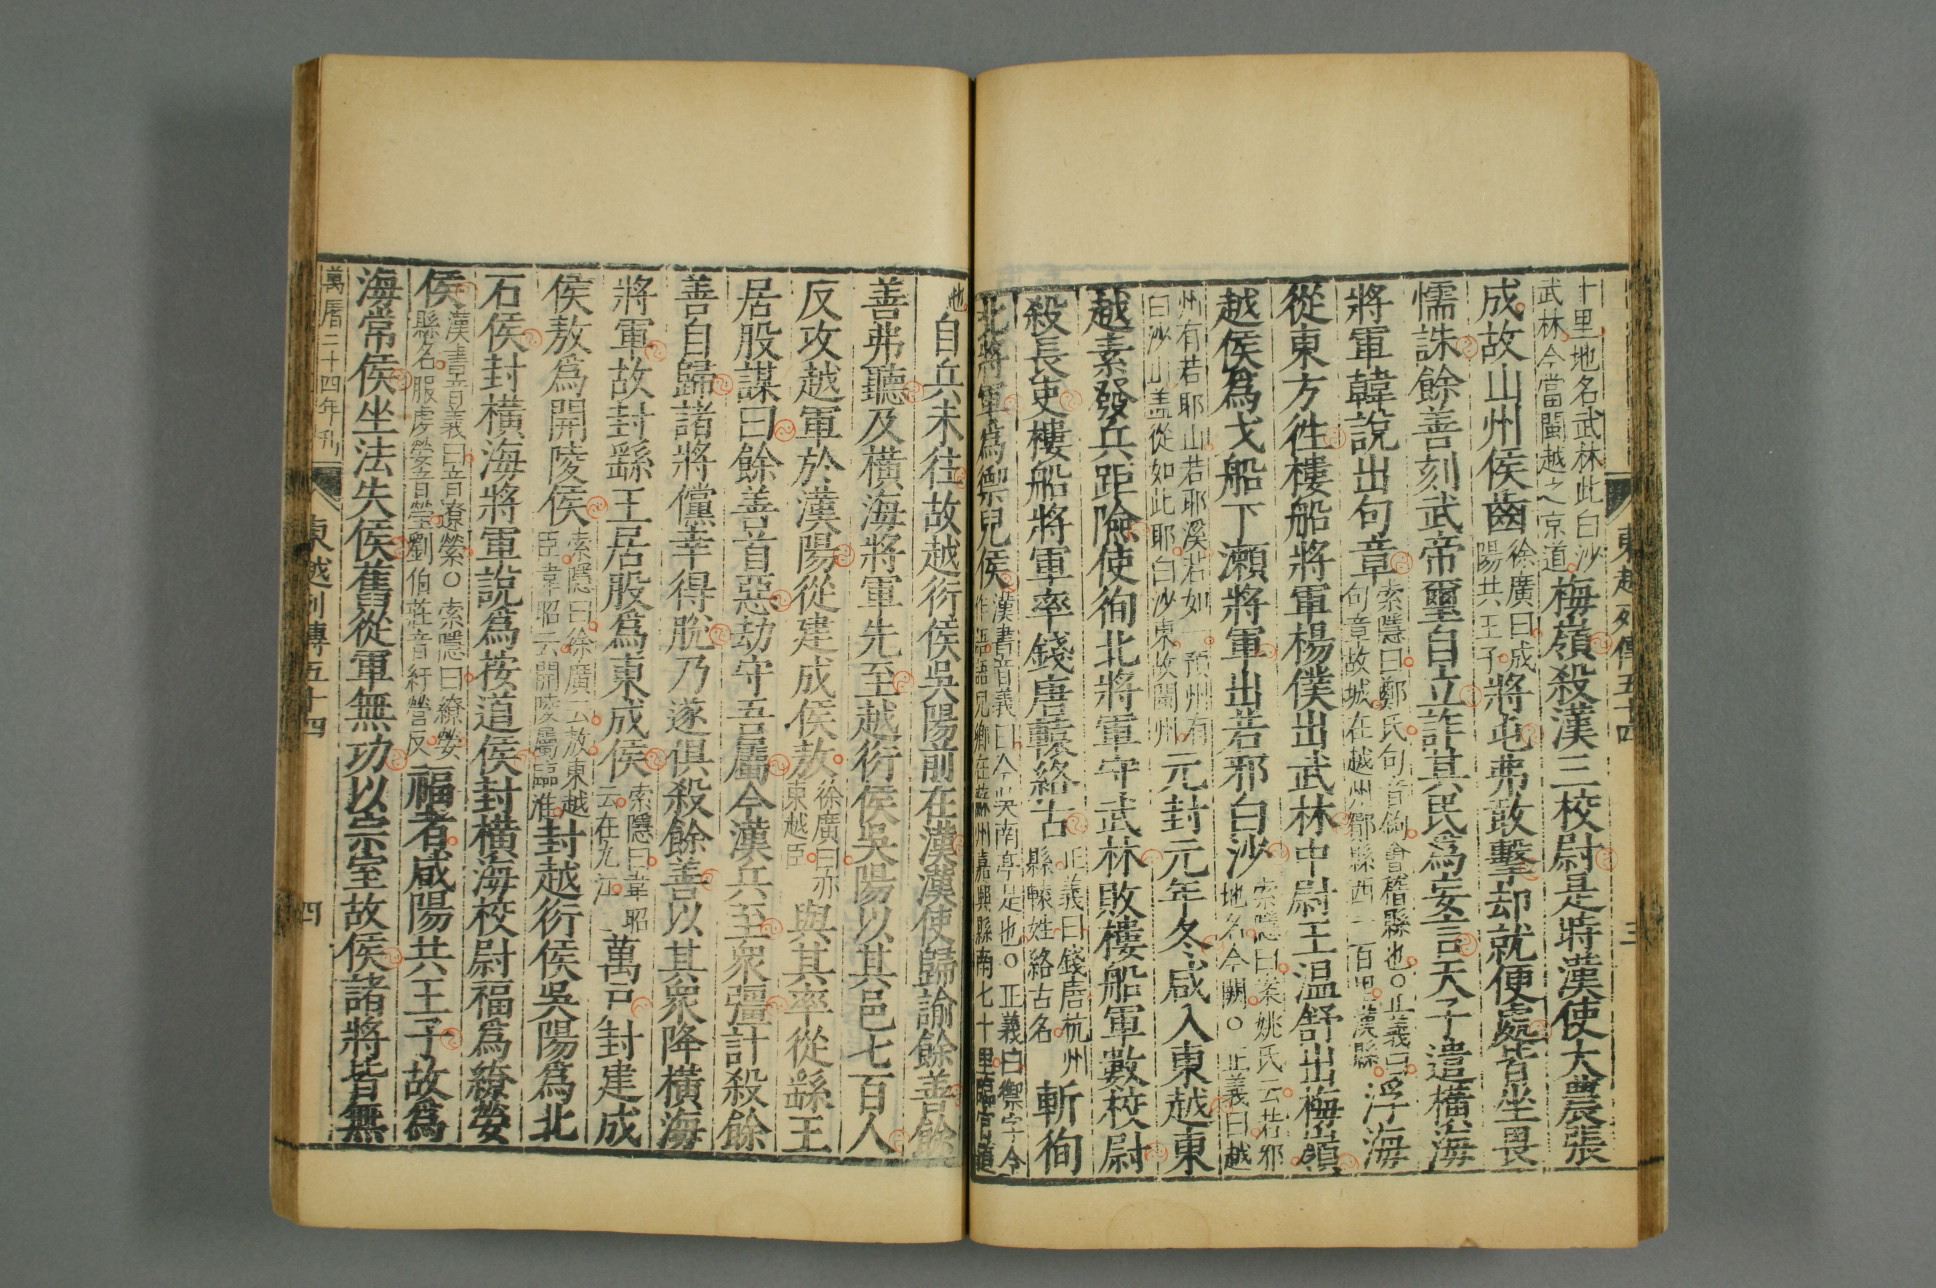 東越列傳五十四
三
十里地名武林此白沙
武林今當閩越之京道
梅嶺殺漢三校尉是時漢使大農張
成故山州侯齒
徐廣曰成
陽共王子
將屯弗敢擊却就便處皆坐畏
懦誅餘善刻武帝璽自立詐其民爲妄言天子遣橫海
將軍韓說出句章
索隱曰鄭氏句音鉤會稽縣也○正義曰
句章故城在越州鄮縣西一百里漢縣
浮海
從東方徃樓船將軍楊僕出武林中尉王溫舒出梅嶺
越侯爲戈船下瀨將軍出若邪白沙
索隱曰案姚氏云若邪
地名今闕○正義曰越
州有若耶山若耶溪若如一預州有
白沙山盖從如此耶白沙東故閩州
元封元年冬咸入東越東
越素發兵距險使徇北將軍守武林敗樓船軍數校尉
殺長吏樓船將軍率錢唐轅終古
正義曰錢唐杭州
縣轅姓絡古名
斬徇
北將軍爲禦兒侯
漢書音義曰今吳南亭是也○正義曰禦字今
作語語兒鄉在蘇州嘉興縣南七十里臨官道
也
自兵未往故越衍侯吳陽前在漢漢使歸諭餘善餘
善弗聽及橫海將軍先至越衍侯吳陽以其邑七百人
反攻越軍於漢陽從建成侯敖
徐廣曰亦
東越臣
與其率從繇王
居股謀曰餘善首惡劫守吾屬今漢兵至衆彊計殺餘
善自歸諸將儻幸得脫乃遂俱殺餘善以其衆降橫海
將軍故封繇王居股爲東成侯
索隱曰韋昭
云在九江
萬戶封建成
侯敖爲開陵侯
索隱曰徐廣云敖東越
臣韋昭云開陵屬臨淮
封越衍侯吳陽爲北
石侯封橫海將軍說爲按道侯封橫海校尉福爲繚嫈
侯
漢書音義曰音遼縈○索隱曰繚嫈
縣名服虔嫈音瑩劉伯莊音紆營反
福者咸陽共王子故爲
海常侯坐法失侯舊從軍無功以宗室故侯諸將皆無
萬曆二十四年刊
東越列傳五十四
四